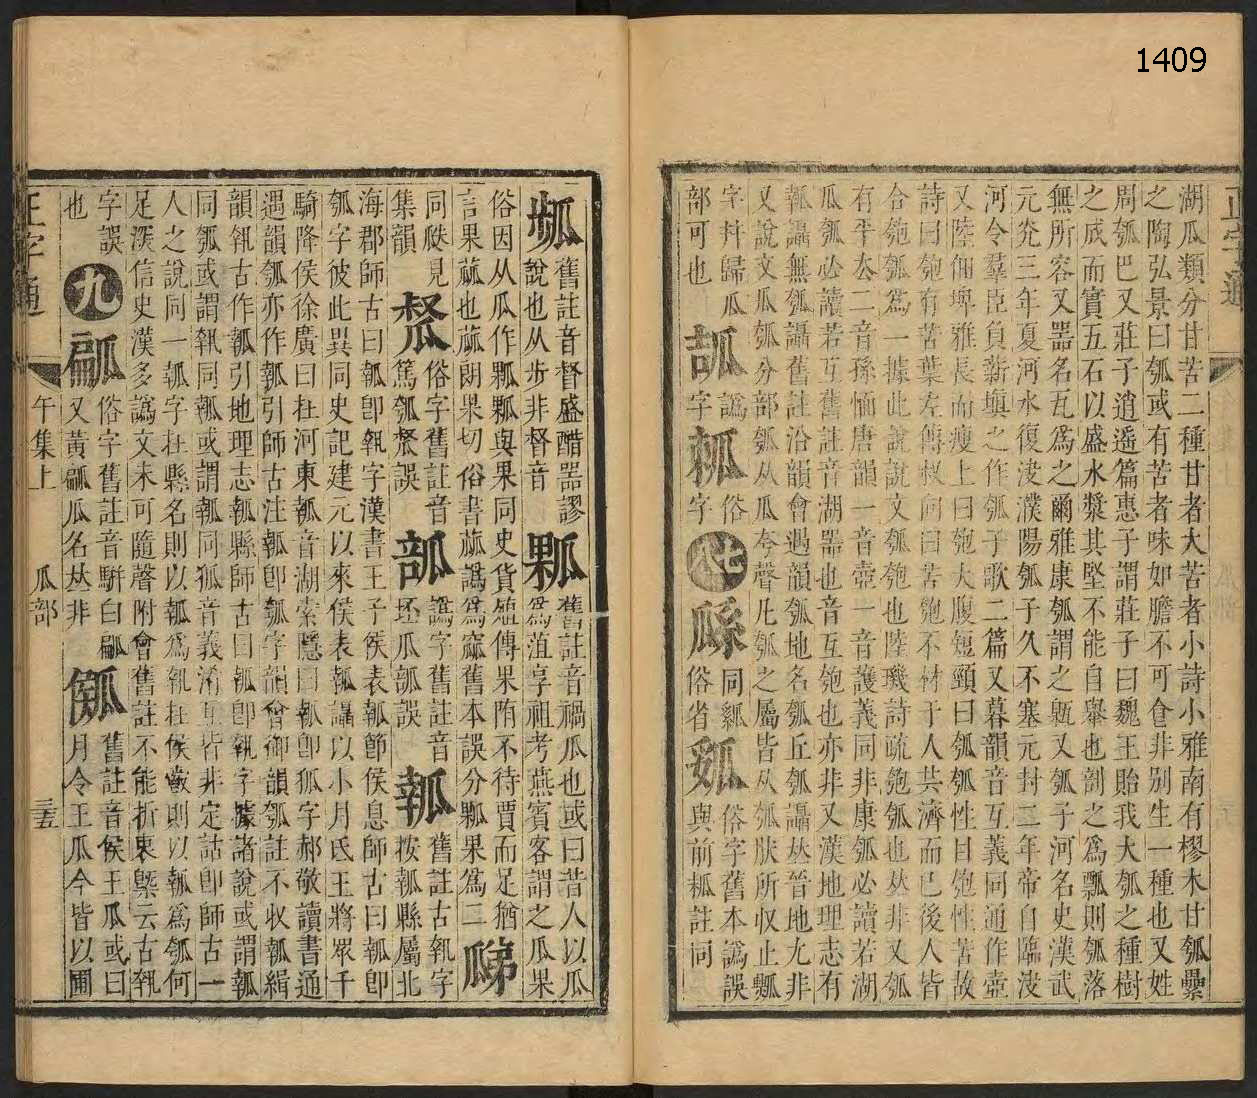 1409
正字通
湖瓜類分甘苦二種甘者大苦者小詩小雅南有樛木甘瓠纍
之陶弘景曰瓠或有苦者味如膽不可食非别生一種也又姓
周瓠巴又莊子逍遙篇惠子謂莊子曰魏王貽我大瓠之種樹
之成而實五石以盛水漿其堅不能自舉也剖之爲瓢則瓠落
無所容又噐名瓦爲之爾雅康瓠謂之甈又瓠子河名史漢武
元光三年夏河水復決濮陽瓠子久不塞元封二年帝自臨決
河令羣臣負薪塡之作瓠子歌二篇又暮韻音互義同通作壺
又陸佃埤雅長而瘦上曰匏大腹短頸曰瓠瓠性甘匏性苦故
詩曰匏有苦葉左傳叔向曰苦匏不材于人共濟而已後人皆
合匏瓠爲一據此說說文瓠匏也陸璣詩疏匏瓠也𠀤非又瓠
有平去二音孫愐唐韻一音壺一音護義同非康瓠必讀若湖
瓜瓠必讀若互舊註音湖噐也音互匏也亦非又漢地理志有
瓡讘無瓠讘舊註沿韻會遇韻瓠地名瓠丘瓠讘𠀤晉地尤非
又說文瓜瓠分部瓠从瓜夸聲凡瓠之屬皆从瓠肤所収止瓢
字幷歸瓜
部可也
字譌
字俗
七
同繇
俗省
俗字舊本譌誤
與前𤫱註同
舊註音督盛醋噐謬
說也从步非督音
舊註音禍瓜也或曰昔人以瓜
爲菹享祖考燕賓客謂之瓜果
俗因从瓜作夥夥與果同史貨殖傳果隋不待賈而足猶
言果蓏也蓏朗果切俗書蓏譌爲𤬁舊本誤分夥果爲二
同瓞見
集韻
俗字舊註音
篤瓠督誤
譌字舊註音
坯瓜瓿誤
瓡
舊註古執字
按瓡縣屬北
海郡師古曰瓡卽執字漢書王子侯表瓡節侯息師古曰瓡卽
瓠字彼此異同史記建元以來侯表瓡讘以小月氏王將眾千
騎降侯徐廣曰在河東瓡音湖索隱曰瓡卽狐字郝敬讀書通
遇韻瓠亦作瓡引師古注瓡卽瓠字韻會御韻瓠註不收瓡緝
韻執古作瓡引地理志瓡縣師古曰瓡卽執字據諸說或謂瓡
同瓠或謂執同瓡或謂瓡同狐音義淆互皆非定詁卽師古一
人之說同一瓡字在縣名則以瓡爲執在侯歲則以瓡爲瓠何
足深信史漢多譌文未可隨聲附會舊註不能折衷槩云古執
字誤
也
九
俗字舊註音骿白瓜
又黃瓜名𠀤非
舊註音侯王瓜或曰
月令王瓜今皆以圃
正字通
午集上
瓜部
三五